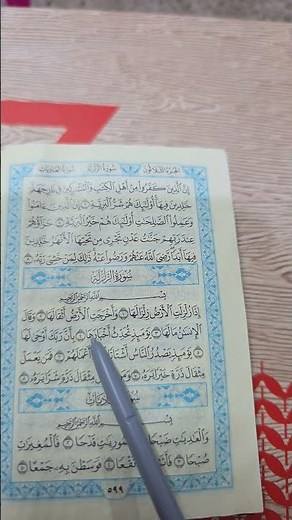 الجزء الثلاثون سورة الزلزلة سورة العاديات
إِنَّ الَّذِينَ كَفَرُوا مِنْ أَهْلِ الْكِتَابِ وَالْمُشْرِكِينَ فِي نَارِ جَهَنَّمَ
خَالِدِينَ فِيهَا أُولَٰئِكَ هُمْ شَرُّ الْبَرِيَّةِ ٦ إِنَّ الَّذِينَ آمَنُوا
وَعَمِلُوا الصَّالِحَاتِ أُولَٰئِكَ هُمْ خَيْرُ الْبَرِيَّةِ ٧ جَزَاؤُهُمْ
عِنْدَ رَبِّهِمْ جَنَّاتُ عَدْنٍ تَجْرِي مِنْ تَحْتِهَا الْأَنْهَارُ خَالِدِينَ
فِيهَا أَبَدًا رَضِيَ اللَّهُ عَنْهُمْ وَرَضُوا عَنْهُ ذَٰلِكَ لِمَنْ خَشِيَ رَبَّهُ ٨
سُورَةُ الزَّلْزَلَةِ
بِسْمِ اللَّهِ الرَّحْمَٰنِ الرَّحِيمِ
إِذَا زُلْزِلَتِ الْأَرْضُ زِلْزَالَهَا ١ وَأَخْرَجَتِ الْأَرْضُ أَثْقَالَهَا ٢ وَقَالَ
الْإِنْسَانُ مَا لَهَا ٣ يَوْمَئِذٍ تُحَدِّثُ أَخْبَارَهَا ٤ بِأَنَّ رَبَّكَ أَوْحَىٰ لَهَا
٥ يَوْمَئِذٍ يَصْدُرُ النَّاسُ أَشْتَاتًا أَعْمَالَهُمْ ٦ فَمَنْ يَعْمَلْ
مِثْقَالَ ذَرَّةٍ خَيْرًا يَرَهُ ٧ وَمَنْ مِثْقَالَ ذَرَّةٍ شَرًّا يَرَهُ ٨
سُورَةُ الْعَادِيَاتِ
بِسْمِ اللَّهِ الرَّحْمَٰنِ الرَّحِيمِ
وَالْعَادِيَاتِ ضَبْحًا ١ فَالْمُورِيَاتِ قَدْحًا ٢ فَالْمُغِيرَاتِ
صُبْحًا ٣ فَأَثَرْنَ نَقْعًا ٤ فَوَسَطْنَ بِهِ جَمْعًا ٥
٥٩٩